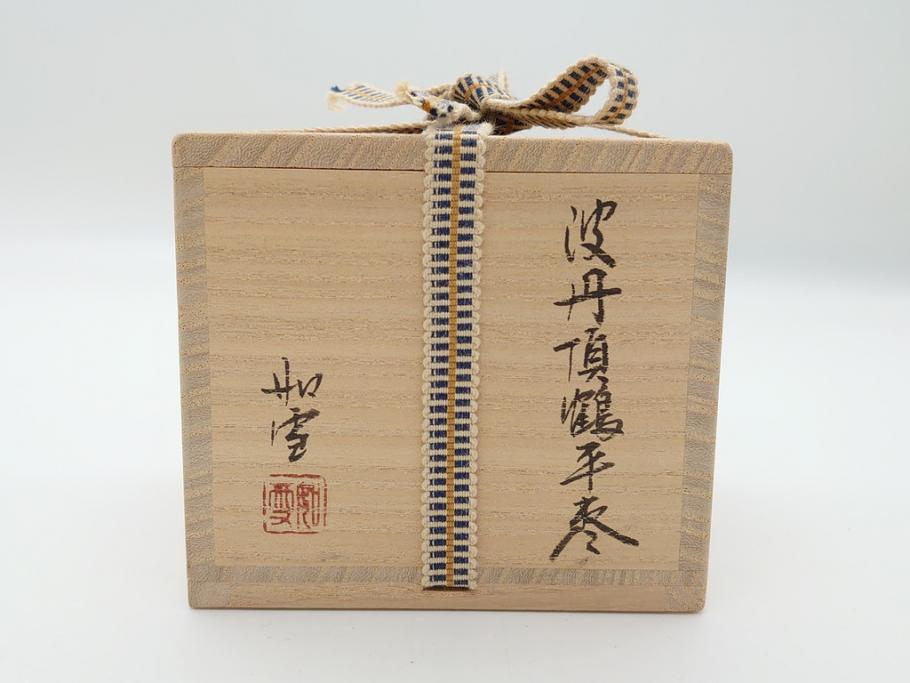 波丹頂鶴平棗
如雪
如雪